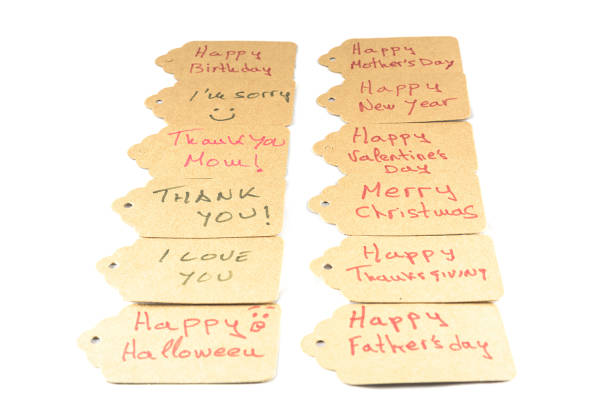 Happy
Birthday
I'm sorry
Thank You
Mom!
THANK
YOU!
I LOVE
YOU
Happy
Halloween
Happy
Mother's Day
Happy
New Year
Happy
Valentine's
Day
Merry
Christmas
Happy
Thanksgiving
Happy
Father's day